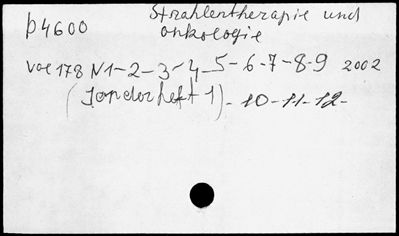 p4600
Strahlentherapie und
onkologie
Vol 178 N1-2-3-4-5-6-7-8-9 2002
(Sonderheft 1)-10-11-12-